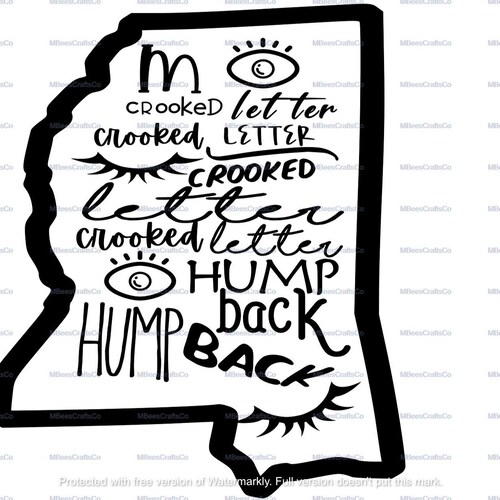 m
CROOKED letter
crooked LETTER
CROOKED
letter
crooked letter
HUMP
back
HUMP
BACK
MBeesCraftsCo
Protected with free version of Watermarkly. Full version doesn't put this mark.